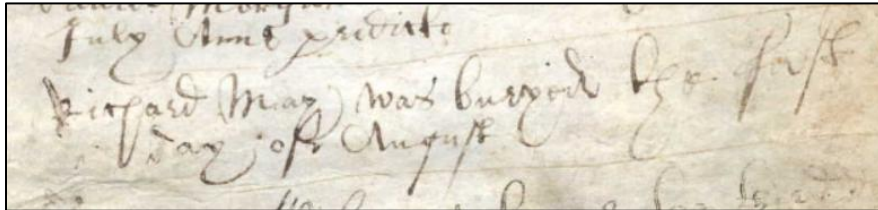 July Anno predicto
Richard May was buryed the first
day of August